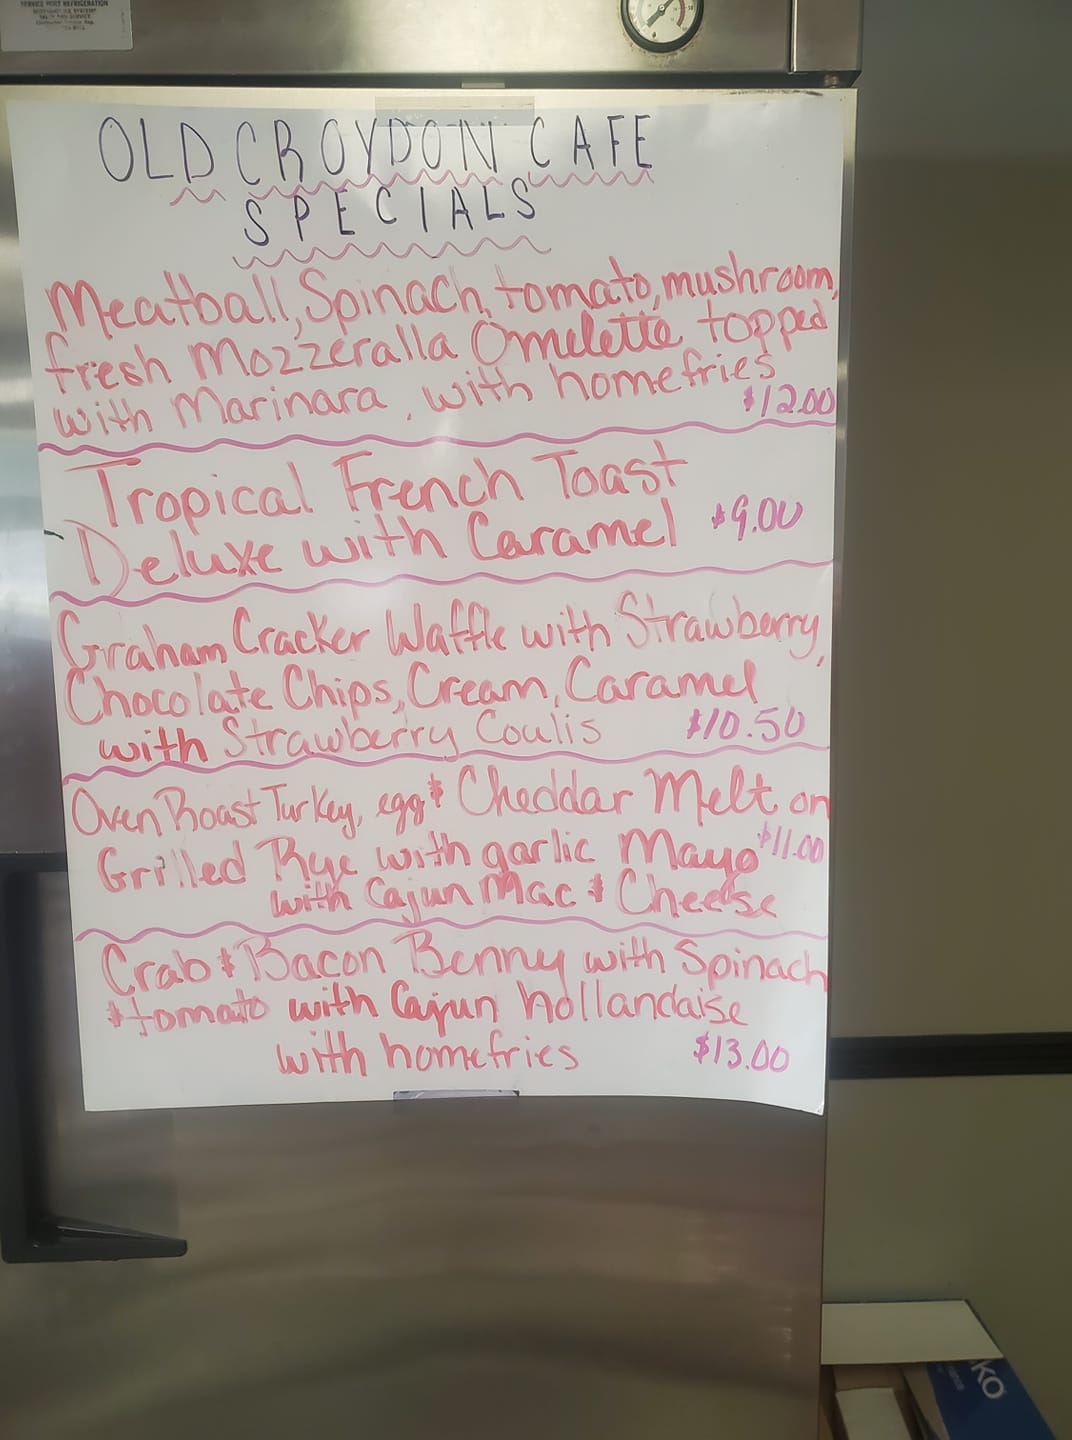 SERVICE PORT REFRIGERATION
OLD CROYDON CAFE
SPECIALS
Meatball, Spinach, tomato, mushroom,
fresh Mozzeralla Omelette topped
with Marinara, with homefries
$12.00
Tropical French Toast
Deluxe with Caramel $9.00
Graham Cracker Waffle with Strawberry,
Chocolate Chips, Cream, Caramel
with Strawberry Coulis $10.50
Oven Roast Turkey, egg & Cheddar Melt on
Grilled Rye with garlic Mayo $11.00
with Cajun Mac & Cheese
Crab & Bacon Benny with Spinach
& tomato with Cajun hollandaise
with homefries $13.00
KO